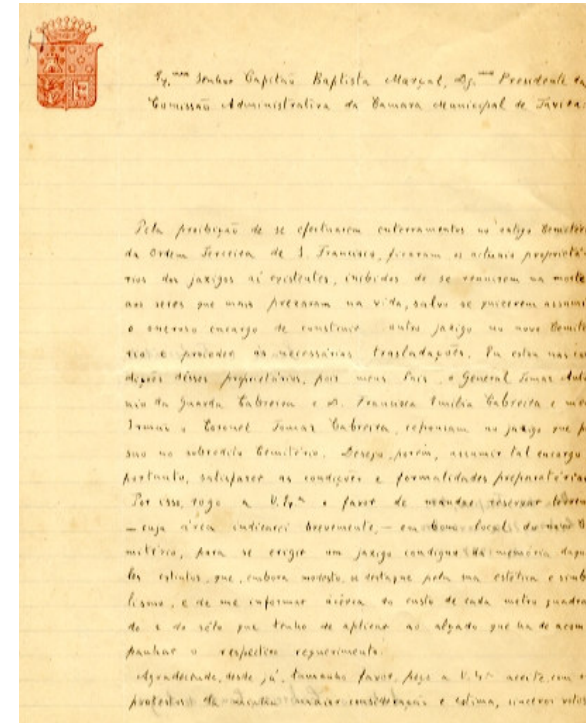 Ex.mo Senhor Capitão Baptista Marçal, Dg.mo Presidente da
Comissão Administrativa da Camara Municipal de Tavira:
Pela proibição de se efectuarem enterramentos no antigo Cemitério
da Ordem Terceira de S. Francisco, ficaram os actuais proprietá-
rios dos jazigos aí existentes, inibidos de se reunirem na morte
aos seres que mais prezaram na vida, salvo se quizerem assumir
o oneroso encargo de construir outro jazigo no novo Cemité-
rio e proceder às necessárias trasladações. Eu estou nas con
dições dêsses proprietários, pois meus Pais, o General Tomaz Antó-
nio da Guarda Cabreira e D. Francisca Emilia Cabreira e meu
Irmão o Coronel Tomaz Cabreira, repousam no jazigo que pos
suo no sobredito Cemitério. Desejo, porém, assumir tal encargo
portanto, satisfazer as condições e formalidades preparatórias
Por isso, rogo a V. Ex.a o favor de mandar reservar terreno
— cuja área indicarei brevemente, — em bom local do novo Ce
mitério, para se erigir um jazigo condigno da memória daque
les extintos, que, embora modesto, se destaque pela sua estética e simbo
lismo, e de me informar àcêrca do custo de cada metro quadra
do e do sêlo que tenho de aplicar ao alçado que ha de acom
panhar o respectivo requerimento.
Agradecendo, desde já, tamanho favor, peço a V. Ex.a aceite, com os
protestos da maior consideração e estima, sinceros votos